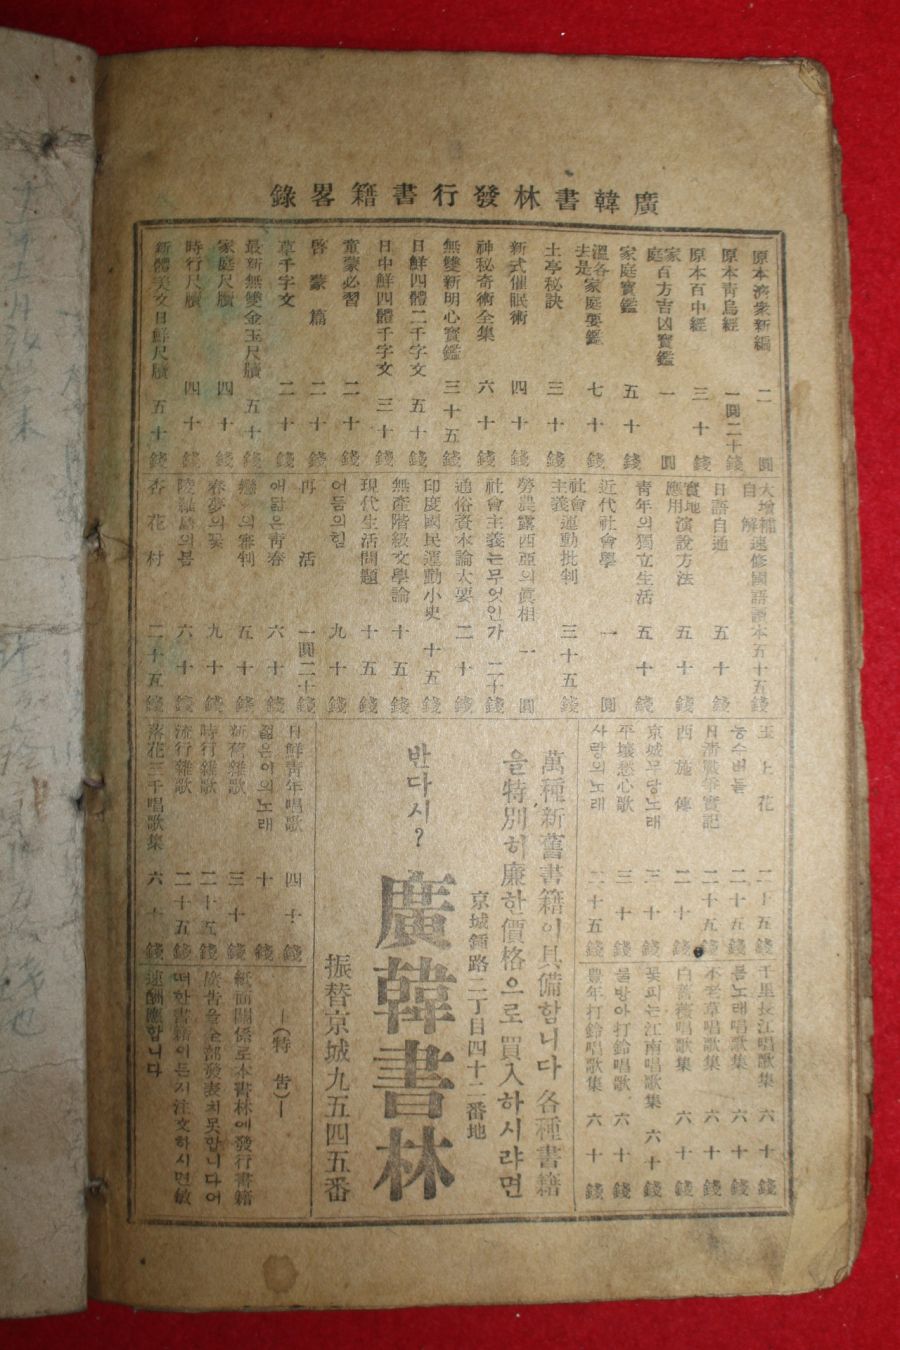 廣韓書林發行書籍畧錄
原本濟衆新編 二圓
原本靑烏經 一圓二十錢
原本百中經 三十錢
家庭百方吉凶寶鑑 一圓
家庭寶鑑 五十錢
溫各去是家庭要鑑 七十錢
土亭秘訣 三十錢
新式催眠術 四十錢
神秘奇術全集 六十錢
無雙新明心寶鑑 三十五錢
日鮮四體二千字文 五十錢
日中鮮四體千字文 三十錢
童蒙必習 二十錢
啓蒙篇 二十錢
草千字文 二十錢
最新無雙金玉尺牘 五十錢
家庭尺牘 四十錢
時行尺牘 四十錢
新體美文日鮮尺牘 五十錢
大增補自解速修國語讀本 五十五錢
日語自通 五十錢
實地應用演說方法 五十錢
靑年의獨立生活 五十錢
近代社會學 一圓
社會主義運動批判 三十五錢
勞農露西亞의眞相 一圓
社會主義는무엇인가 二十錢
通俗資本論大要 二十錢
印度國民運動小史 十五錢
無產階級文學論 十五錢
現代生活問題 十五錢
어둠의힘 九十錢
再活 一圓二十錢
애닯은靑春 六十錢
戀의審判 五十錢
春夢의꽃 九十錢
陵羅島의봄 六十錢
杏花村 二十五錢
玉上花 二十五錢
능수버들 二十五錢
日淸戰爭實記 二十五錢
西施傳 二十錢
京城무당노래 三十錢
平壤愁心歌 三十錢
사랑의노래 二十五錢
千里長江唱歌集 六十錢
봄노래唱歌集 六十錢
不老草唱歌集 六十錢
白薔薇唱歌集 六十錢
꽃피는江南唱歌集 六十錢
물방아打鈴唱歌 六十錢
豊年打鈴唱歌集 六十錢
萬種新舊書籍이具備함니다 各種書籍
을特別히廉한價格으로買入하시랴면
반다시?
京城鍾路二丁目四十二番地
廣韓書林
振替京城九五四五番
日鮮靑年唱歌 四十錢
젊은이의노래 十錢
新舊雜歌 三十錢
時行雜歌 二十五錢
流行雜歌 二十五錢
落花三千唱歌集 六十錢
—(特告)—
紙面關係로本書林에發行書籍
廣告을全部發表치못합니다어
떠한書籍이든지注文하시면敏
速酬應합니다